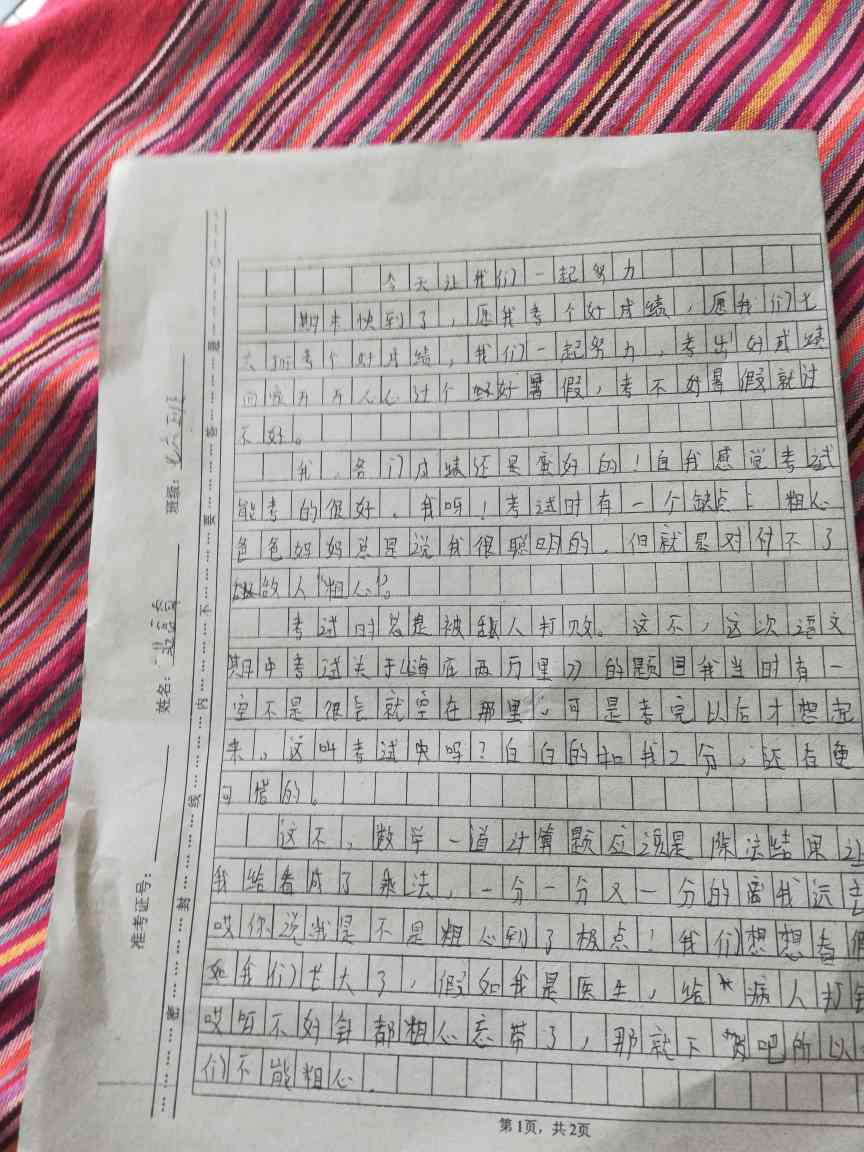 今天让我们一起努力
期末快到了，愿我考个好成绩，愿我们七
考个好成绩，我们一起努力，考出好成绩
过个好暑假，考不好暑假就过
不好。
我，各门成绩还是蛮好的！自我感觉考试
能考的很好。我呀！考试时有一个缺点 粗心
爸爸妈妈总是说我很聪明的，但就是对付不了
敌人“粗心”。
考试时总是被敌人打败。这不，这次语文
期中考试关于《海底两万里》的题目我当时有一
空不是很会就空在那里，可是考完以后才想起
来，这叫考试吗？白白的扣我2分，还有更
可惜的。
这不，数学一道计算题应该是除法结果让
我给看成了乘法，一分一分又一分的离我远去
哎你说我是不是粗心到了极点！我们想想看假
如我们长大了，假如我是医生，给病人打针
哎呀不好针都粗心忘带了，那就下岗吧所以
们不能粗心.
第1页，共2页
班级：
姓名：
准考证号：
密 封 线 内 不 要 答 题